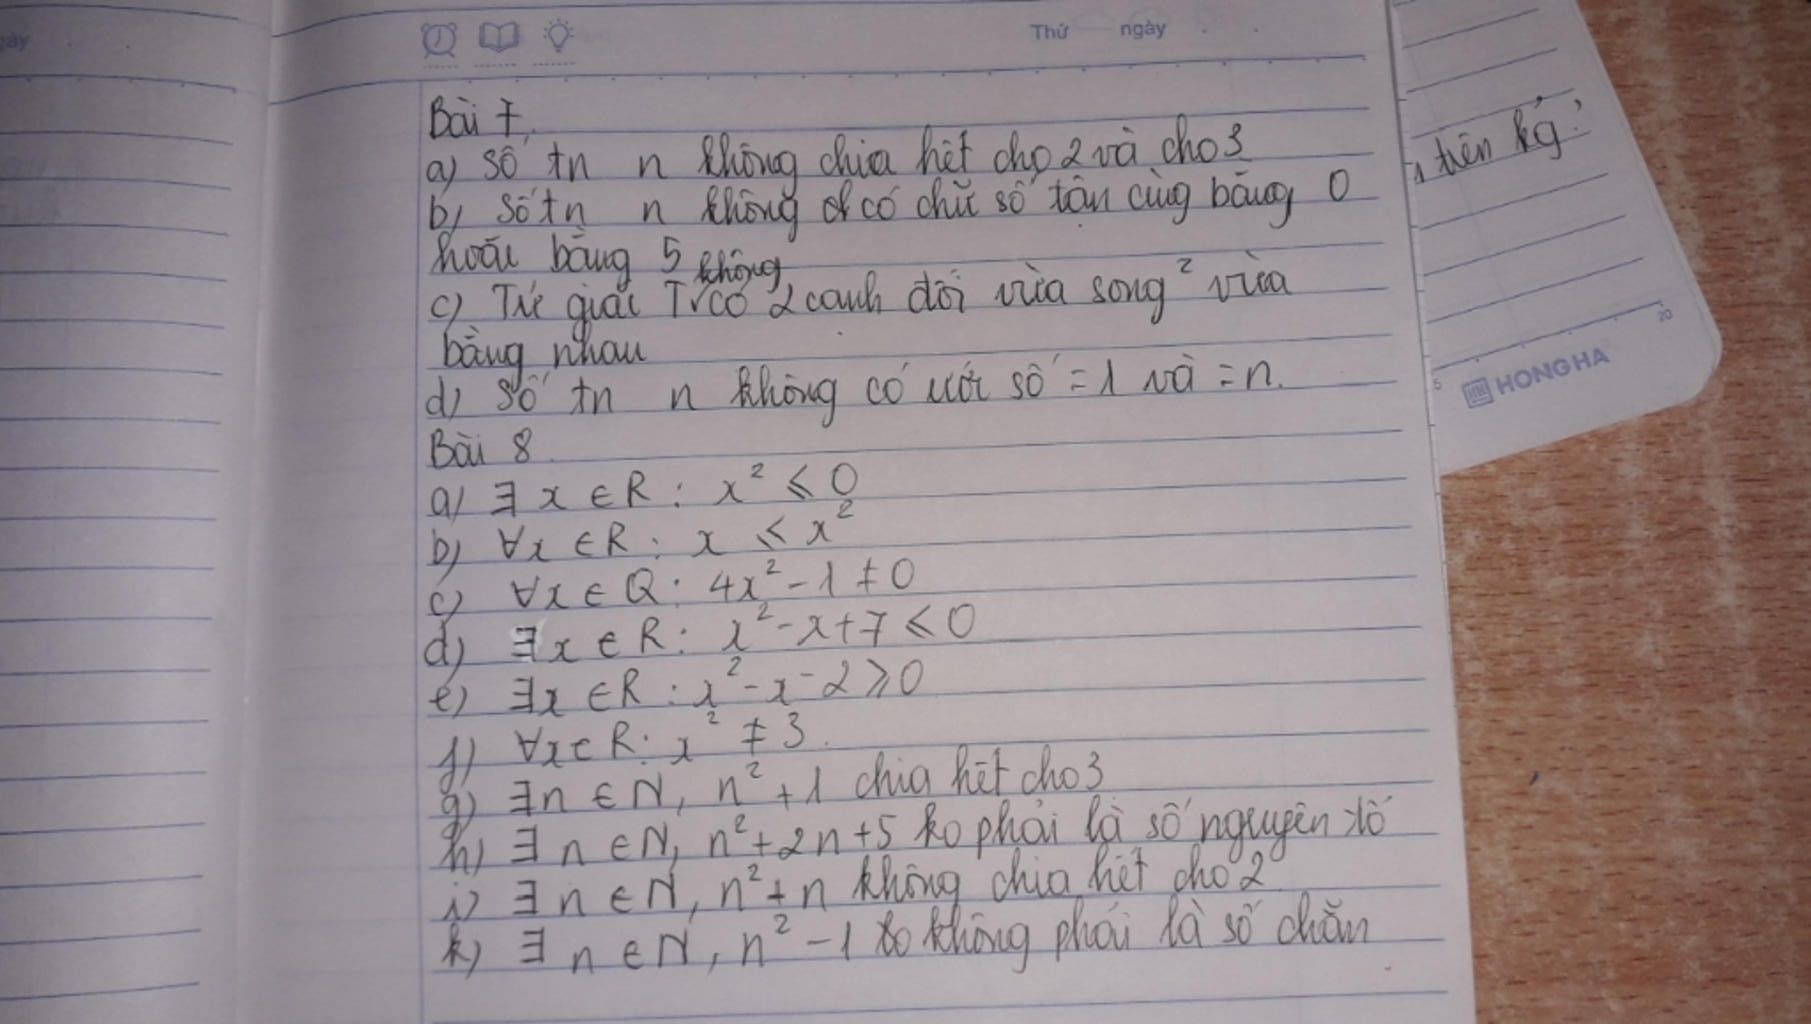 ày
Thứ ngày
Bài 7
a) số tn n không chia hết cho 2 và cho 3
b) số tn n không có chữ số tận cùng bằng 0
hoặc bằng 5
không
c) Tứ giác T có 2 cạnh đối vừa song² vừa
bằng nhau
d) số tn n không có ước số = 1 và = n.
Bài 8
a) ∃ x ∈ R : x² ⩽ 0
b) ∀x ∈ R : x ⩽ x²
c) ∀x ∈ Q : 4x² - 1 ≠ 0
d) ∃x ∈ R : x² - x + 7 ⩽ 0
e) ∃x ∈ R : x² - x - 2 ⩾ 0
f) ∀x ∈ R : x² ≠ 3.
g) ∃n ∈ N, n² + 1 chia hết cho 3
h) ∃ n ∈ N, n² + 2n + 5 ko phải là số nguyên tố
i) ∃ n ∈ N, n² + n không chia hết cho 2
k) ∃ n ∈ N, n² - 1 không phải là số chẵn
20
5
HONG HA